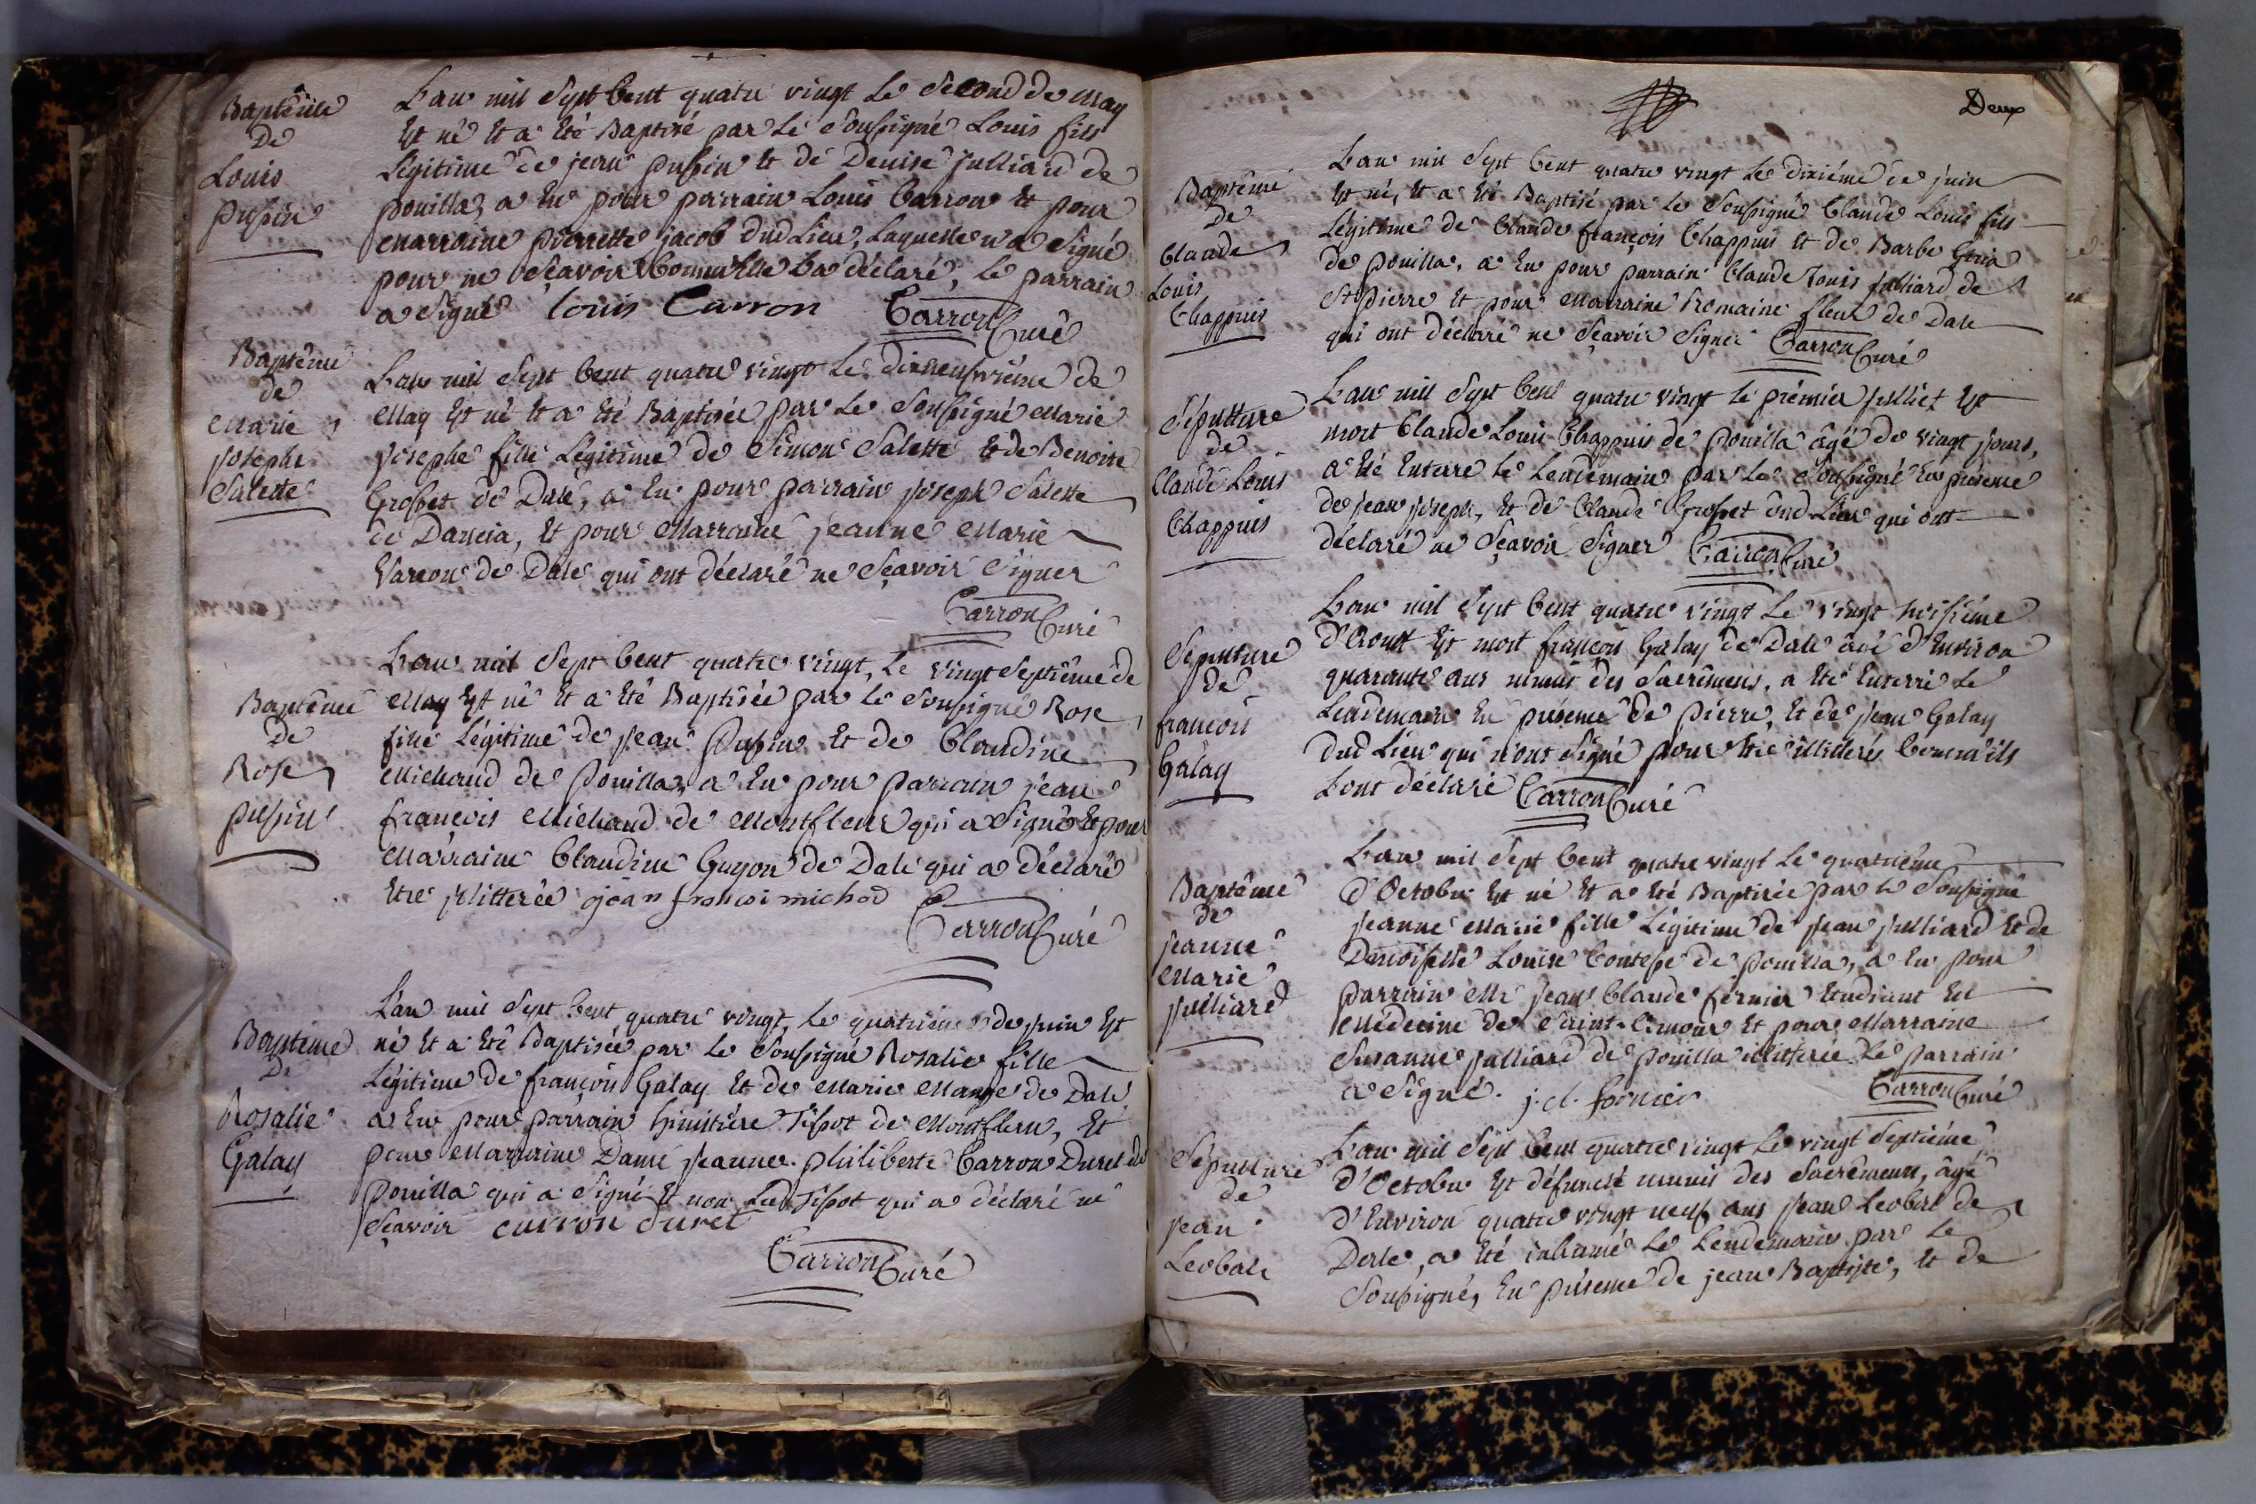 Baptême
de
Louis
pupin
L'an mil sept Cent quatre vingt le second de May
Est né Et a Eté Baptisé par le soussigné Louis fils
Légitime de jean pupin Et de Denise julliard de
pouilla, a Eu pour parrain Louis Carron Et pour
Marraine pierrette jacob dud Lieu, Laquelle n'a signé
pour ne sçavoir Comm'Elle L'a déclaré, le parrain
a signé Louis Carron Carron Curé
Baptême
de
Marie
josephe
Salette
L'an mil sept Cent quatre vingt le dixneufvième de
May Est né Et a Eté Baptisée par le soussigné Marie
josephe fille Légitime de Simon Salette Et de Benoite
Grosset de Dalé, a Eu pour parrain joseph Salette
de Dancia, Et pour Marraine jeanne Marie
de Dalé qui ont déclaré ne sçavoir signer
Carron Curé
Baptême
de
Rose
pupin
L'an mil sept Cent quatre vingt, le vingt septième de
May Est né Et a Eté Baptisée par le soussigné Rose
fille Légitime de jean pupin Et de Claudine
Michaud de pouilla, a Eu pour parrain jean
françois Michaud de Montfleur qui a signé Et pour
Marraine Claudine Guyon de Dalé qui a déclaré
Etre jllitterée jean francoi michod
Carron Curé
Baptême
De
Rosalie
Galay
L'an mil sept Cent quatre vingt, le quatrieme de juin Est
né Et a Eté Baptisée par le soussigné Rosalie fille
Légitime de françois Galay Et de Marie Mange de Dalé
a Eu pour parrain Tissot de Montfleur, Et
pour Marraine Dame jeanne philiberte Carron Duret de
pouilla qui a signé Et non Led Tissot qui a déclaré ne
sçavoir carron duret
Carron Curé
Deux
Baptême
de
Claude
Louis
Chappuis
L'an mil sept Cent quatre vingt le dixiéme de juin
Est né, Et a Eté Baptisé par le soussigné Claude Louis fils
Légitime de Claude françois Chappuis Et de Barbe
de pouilla, a Eu pour parrain Claude Louis julliard de
St pierre Et pour Marraine Romaine fleur de Dalé
qui ont déclaré ne sçavoir signer Carron Curé
Sépulture
de
Claude Louis
Chappuis
L'an mil sept Cent quatre vingt le prémier julliet Est
mort Claude Louis Chappuis de pouilla âgé de vingt jours,
a Eté Enterré le Lendemain par le soussigné En présence
de jean joseph, Et de Claude Grosset dud Lieu qui ont
déclaré ne sçavoir signer Carron Curé
Sepulture
de
françois
Galay
L'an mil sept Cent quatre vingt le vingt troisiéme
d'Aoust Est mort françois Galay de Dalé âgé d'Environ
quarante ans munit des sacrémens, a Eté Enterré le
Lendemain En présence de pierre, Et de jean Galay
dud Lieu qui n'ont signé pour être illitterés Comm'ils
L'ont déclaré Carron Curé
Baptême
de
jeanne
Marie
julliard
L'an mil sept Cent quatre vingt le quatriéme
d'Octobre Est né Et a Eté Baptisée par le soussigné
jeanne Marie fille Légitime de jean julliard Et de
Demoiselle Louise Contesse de pouilla, a Eu pour
parrain Mr jean Claude fernier Etudiant En
Médecine de Saint-Amour Et pour Marraine
Susanne julliard de pouilla illitterée Le parrain
a signé. j. cl. fornier Carron Curé
Sépulture
de
jean
Leobal
L'an mil sept Cent quatre vingt le vingt septiéme
d'Octobre Est défunct munis des sacrémens, âgé
d'Environ quatre vingt neuf ans jean Leobal de
Dale, a Eté inhumé Le Lendemain par le
soussigné, En présence de jean Baptiste, Et de